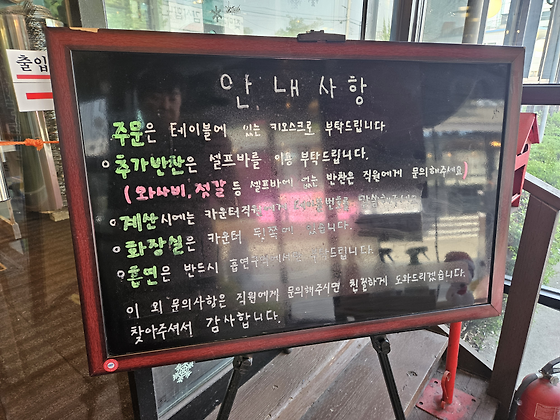 출입
안내사항
주문은 테이블에 있는 키오스크로 부탁드립니다
추가반찬은 셀프바를 이용 부탁드립니다.
(와사비, 젓갈 등 셀프바에 없는 반찬은 직원에게 문의해주세요)
계산시에는 카운터직원에게
화장실은 카운터 뒷쪽에 있습니다.
흡연은 반드시 부탁드립니다.
이 외 문의사항은 직원에게 문의해주시면 친절하게 도와드리겠습니다.
찾아주셔서 감사합니다.